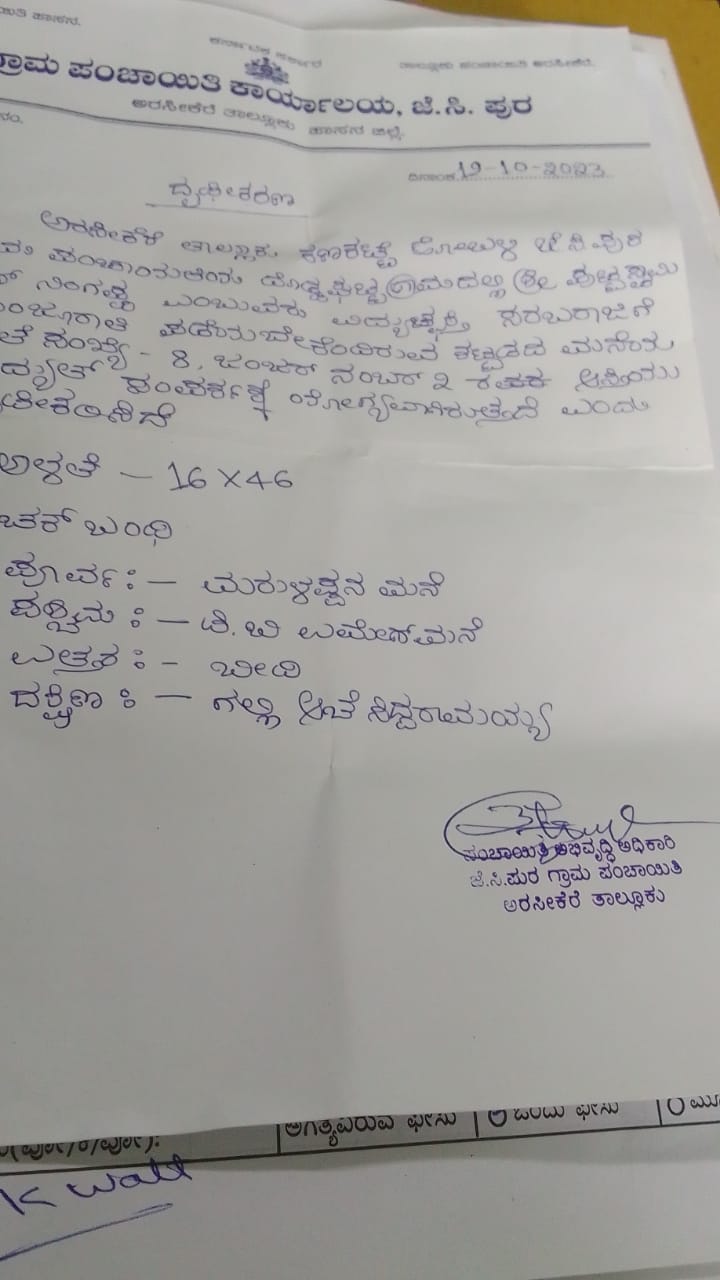 ಕರ್ನಾಟಕ ಸರ್ಕಾರ
ಗ್ರಾಮ ಪಂಚಾಯಿತಿ ಕಾರ್ಯಾಲಯ, ಜೆ.ಸಿ. ಪುರ
ಅರಸೀಕೆರೆ ತಾಲ್ಲೂಕು ಹಾಸನ ಜಿಲ್ಲೆ.
ದಿನಾಂಕ 12-10-2023
ದೃಢೀಕರಣ
ಅರಸೀಕೆರೆ ತಾಲ್ಲೂಕು ಕಣಕಟ್ಟೆ ಹೋಬಳಿ ಜೆ ಸಿ ಪುರ
ಪಂಚಾಯಿತಿಯ ಗ್ರಾಮದಲ್ಲಿ ಶ್ರೀ
ಲಿಂಗಪ್ಪ ಎಂಬುವರು ವಿದ್ಯುಚ್ಛಕ್ತಿ ಸರಬರಾಜಿಗೆ
ಪಡೆಯಬೇಕೆಂದಿರುವ ಕಟ್ಟಡದ ಮನೆಯ
ಸಂಖ್ಯೆ - 8, ನಂಬರ್ 2
ಸಂಪರ್ಕಕ್ಕೆ ಯೋಗ್ಯವಾಗಿರುತ್ತದೆ ಎಂದು
ಅಳತೆ - 16 X 46
ಚಕ್ ಬಂಧಿ
ಪೂರ್ವ : - ಮರುಳಪ್ಪನ ಮನೆ
ಪಶ್ಚಿಮ : - ಟಿ.ಬಿ ಉಮೇಶ್ ಮನೆ
ಉತ್ತರ : - ಬೀದಿ
ದಕ್ಷಿಣ : - ಗಲ್ಲಿ ಆಚೆ ಸಿದ್ದರಾಮಯ್ಯ
ಪಂಚಾಯಿತಿ ಅಭಿವೃದ್ಧಿ ಅಧಿಕಾರಿ
ಜೆ.ಸಿ.ಪುರ ಗ್ರಾಮ ಪಂಚಾಯಿತಿ
ಅರಸೀಕೆರೆ ತಾಲ್ಲೂಕು
ಅಗತ್ಯವಿರುವ ಫೇಸು ಒಂದು ಫೇಸು
K Watt